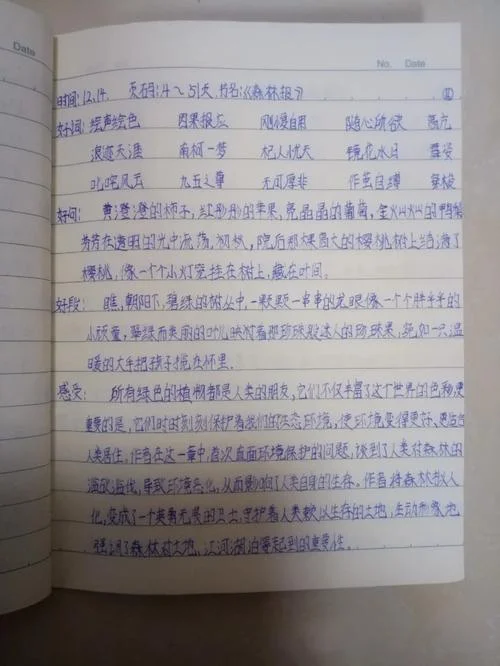 Date
No. Date
时间:12.14. 页码:4~51页 书名:《森林报》
好词:绘声绘色 因果报应 刚愎自用 随心所欲
浪迹天涯 南柯一梦 杞人忧天 镜花水月
叱咤风云 九五之尊 无可厚非 作茧自缚
好句:黄澄澄的柿子,红彤彤的苹果,亮晶晶的葡萄,金灿灿的鸭梨
芳香在透明的光中流荡。初秋,院后那棵高大的樱桃树上结满了
樱桃,像一个个小灯笼挂在树上,藏在叶间。
好段:瞧,朝阳下,碧绿的树丛中,一颗颗一串串的龙眼像一个个胖乎乎的
小顽童,翠绿而美丽的叶儿映衬着那珍珠般迷人的珍珠果,宛如一只温
暖的大手把孩子揽在怀里。
感受:所有绿色的植物都是人类的朋友,它们不仅丰富了这个世界的色彩,更
重要的是,它们时时刻刻保护着我们的生态环境,使环境变得更好,更适合
人类居住。作者在这一章中,首次直面环境保护的问题,谈到了人类对森林的
滥砍滥伐,导致环境恶化,从而影响了人类自身的生存。作者将森林拟人
化,变成了一个英勇无畏的卫士,守护着人类赖以生存的土地,生动形象地
强调了森林对土地、江河湖泊等起到的重要性。